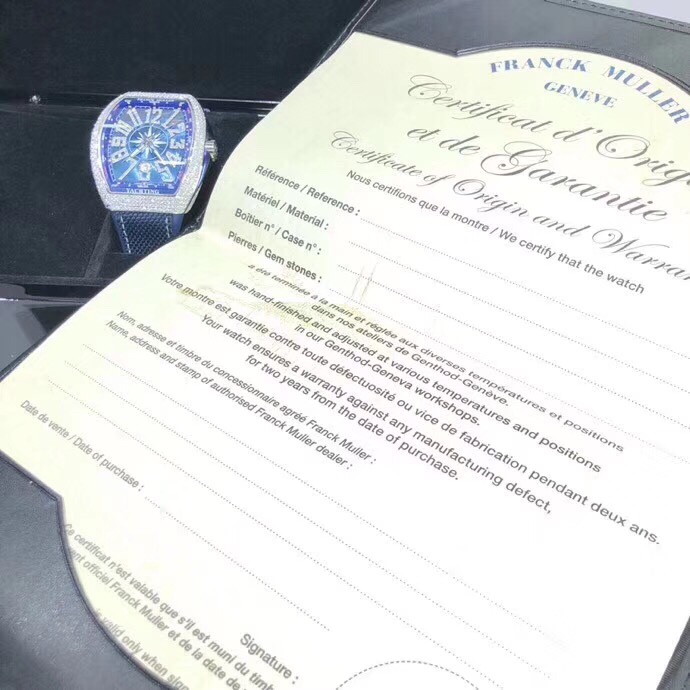 FRANCK MULLER
GENEVE
Certificat d'Orig
et de Garantie
Certificate of Origin and Warran
Nous certifions que la montre / We certify that the watch
Référence / Reference :
Matériel / Material :
Boitier n° / Case n° :
Pierres / Gem stones :
a été terminée à la main et réglée aux diverses températures et positions
dans nos ateliers de Genthod-Genève.
was hand-finished and adjusted at various temperatures and positions
in our Genthod-Geneva workshops.
Votre montre est garantie contre toute défectuosité ou vice de fabrication pendant deux ans.
Your watch ensures a warranty against any manufacturing defect,
for two years from the date of purchase.
Nom, adresse et timbre du concessionnaire agréé Franck Muller :
Name, address and stamp of authorised Franck Muller dealer :
Date de vente / Date of purchase :
Ce certificat n'est valable que s'il est muni du timb
ent officiel Franck Muller et de la date de
is valid only when sig
Signature :
YACHTING